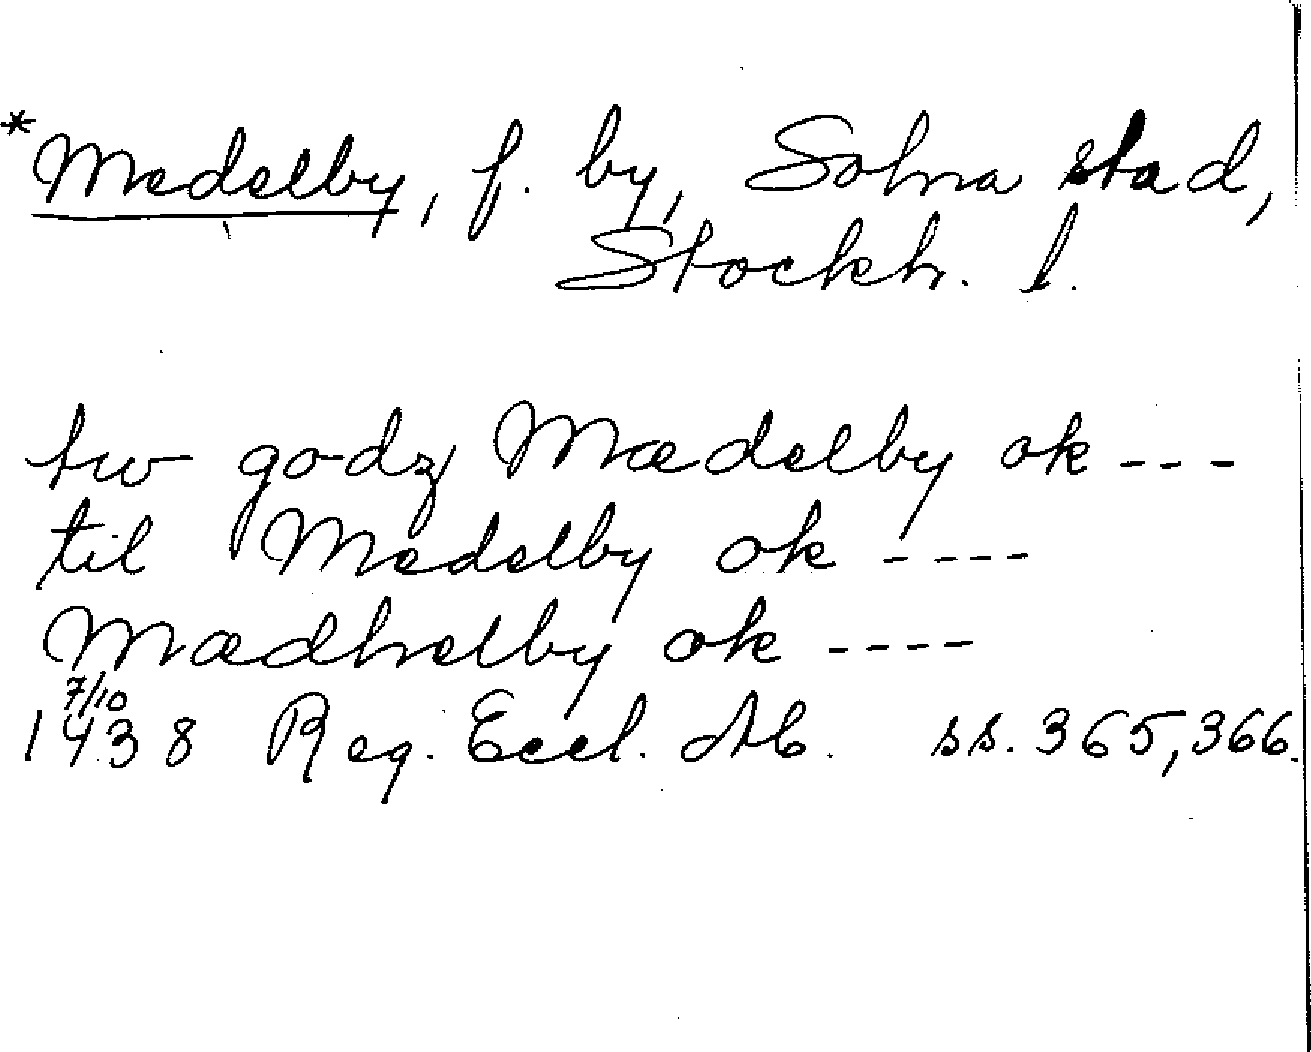 *Medelby, f. by, Solna stad,
Stockh. l.
tw godz Mædelby ok ---
til Medelby ok ----
Mædhelby ok ----
7/10
1438 Reg. Eccl. Ab. ss. 365, 366.